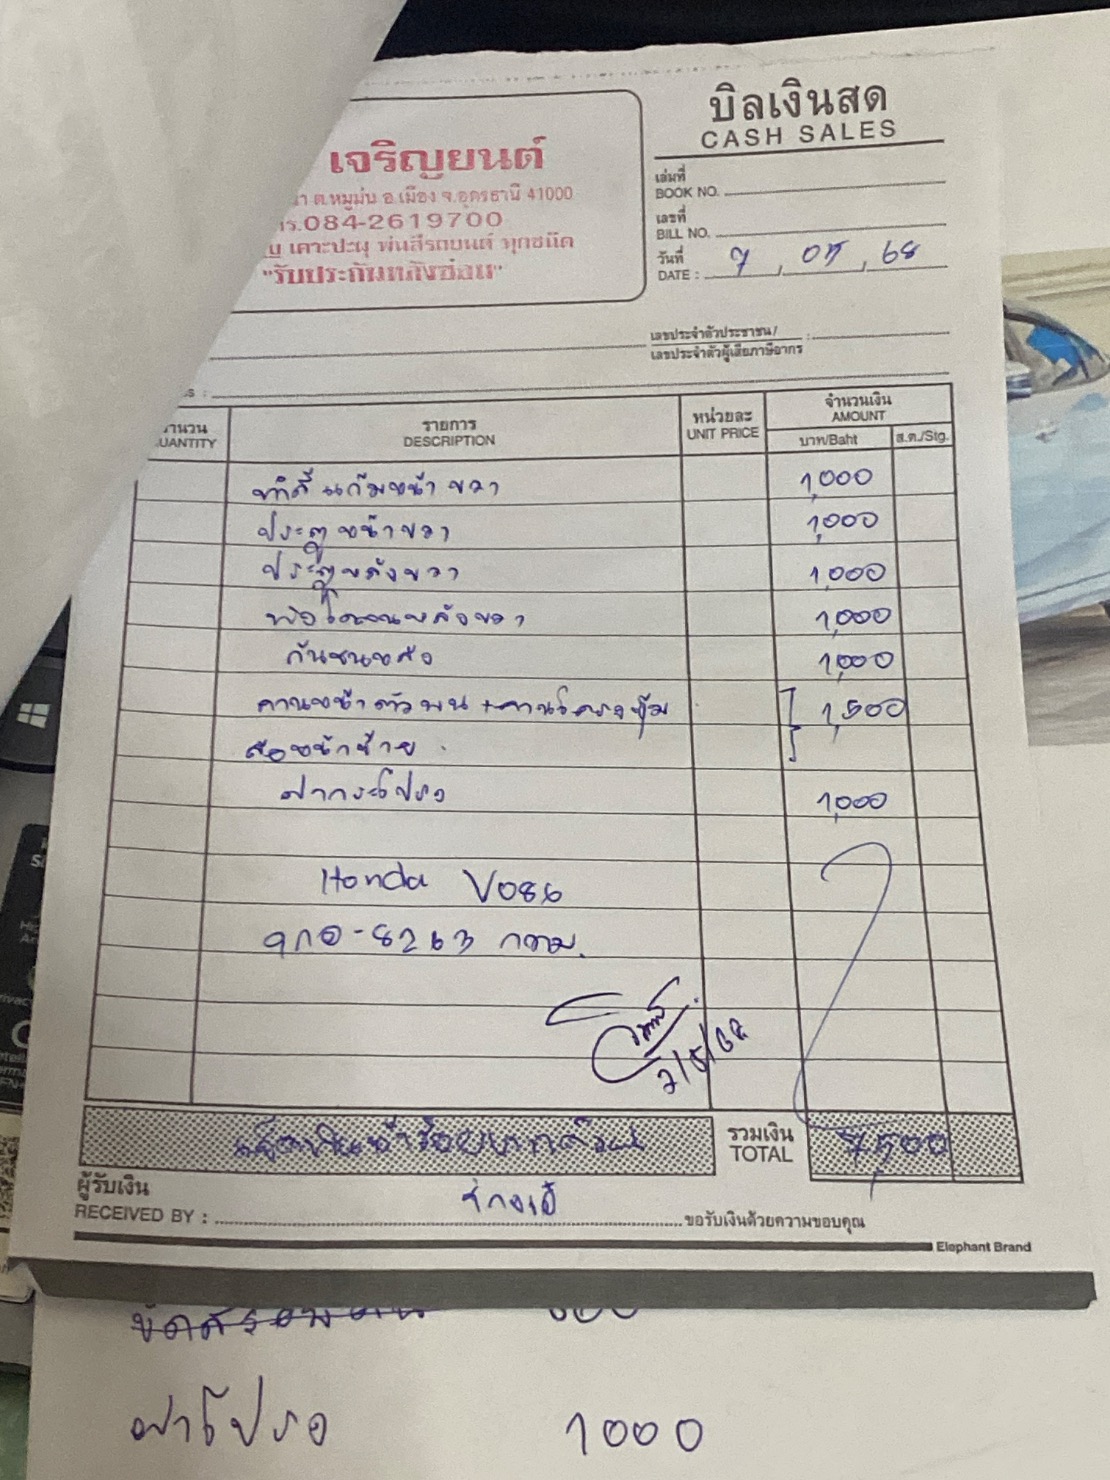 บิลเงินสด
CASH SALES
เจริญยนต์
ต.หมูม่น อ.เมือง จ.อุดรธานี 41000
โทร.084-2619700
เคาะปะผุ พ่นสีรถยนต์ ทุกชนิด
"รับประกันหลังซ่อม"
เล่มที่
BOOK NO.
เลขที่
BILL NO.
วันที่
DATE : 7 , 05 , 68
เลขประจำตัวประชาชน/ :
เลขประจำตัวผู้เสียภาษีอากร
จำนวน รายการ หน่วยละ จำนวนเงิน
QUANTITY DESCRIPTION UNIT PRICE AMOUNT
บาท/Baht ส.ต./Stg.
ทำสี แก้มหน้า ขวา 1,000
ประตูหน้าขวา 1,000
ประตูหลังขวา 1,000
หลังขวา 1,000
กันชนหลัง 1,000
คานหน้าตัวบน + คาน 1,500
หน้าซ้าย
ฝากระโปรง 1,000
Honda V086
9กอ-8263 กทม.
7/5/68
เจ็ดพันห้าร้อยบาทถ้วน รวมเงิน 7,500
TOTAL
ผู้รับเงิน
RECEIVED BY : ขอรับเงินด้วยความขอบคุณ
Elephant Brand
ฝาโปรง 1000